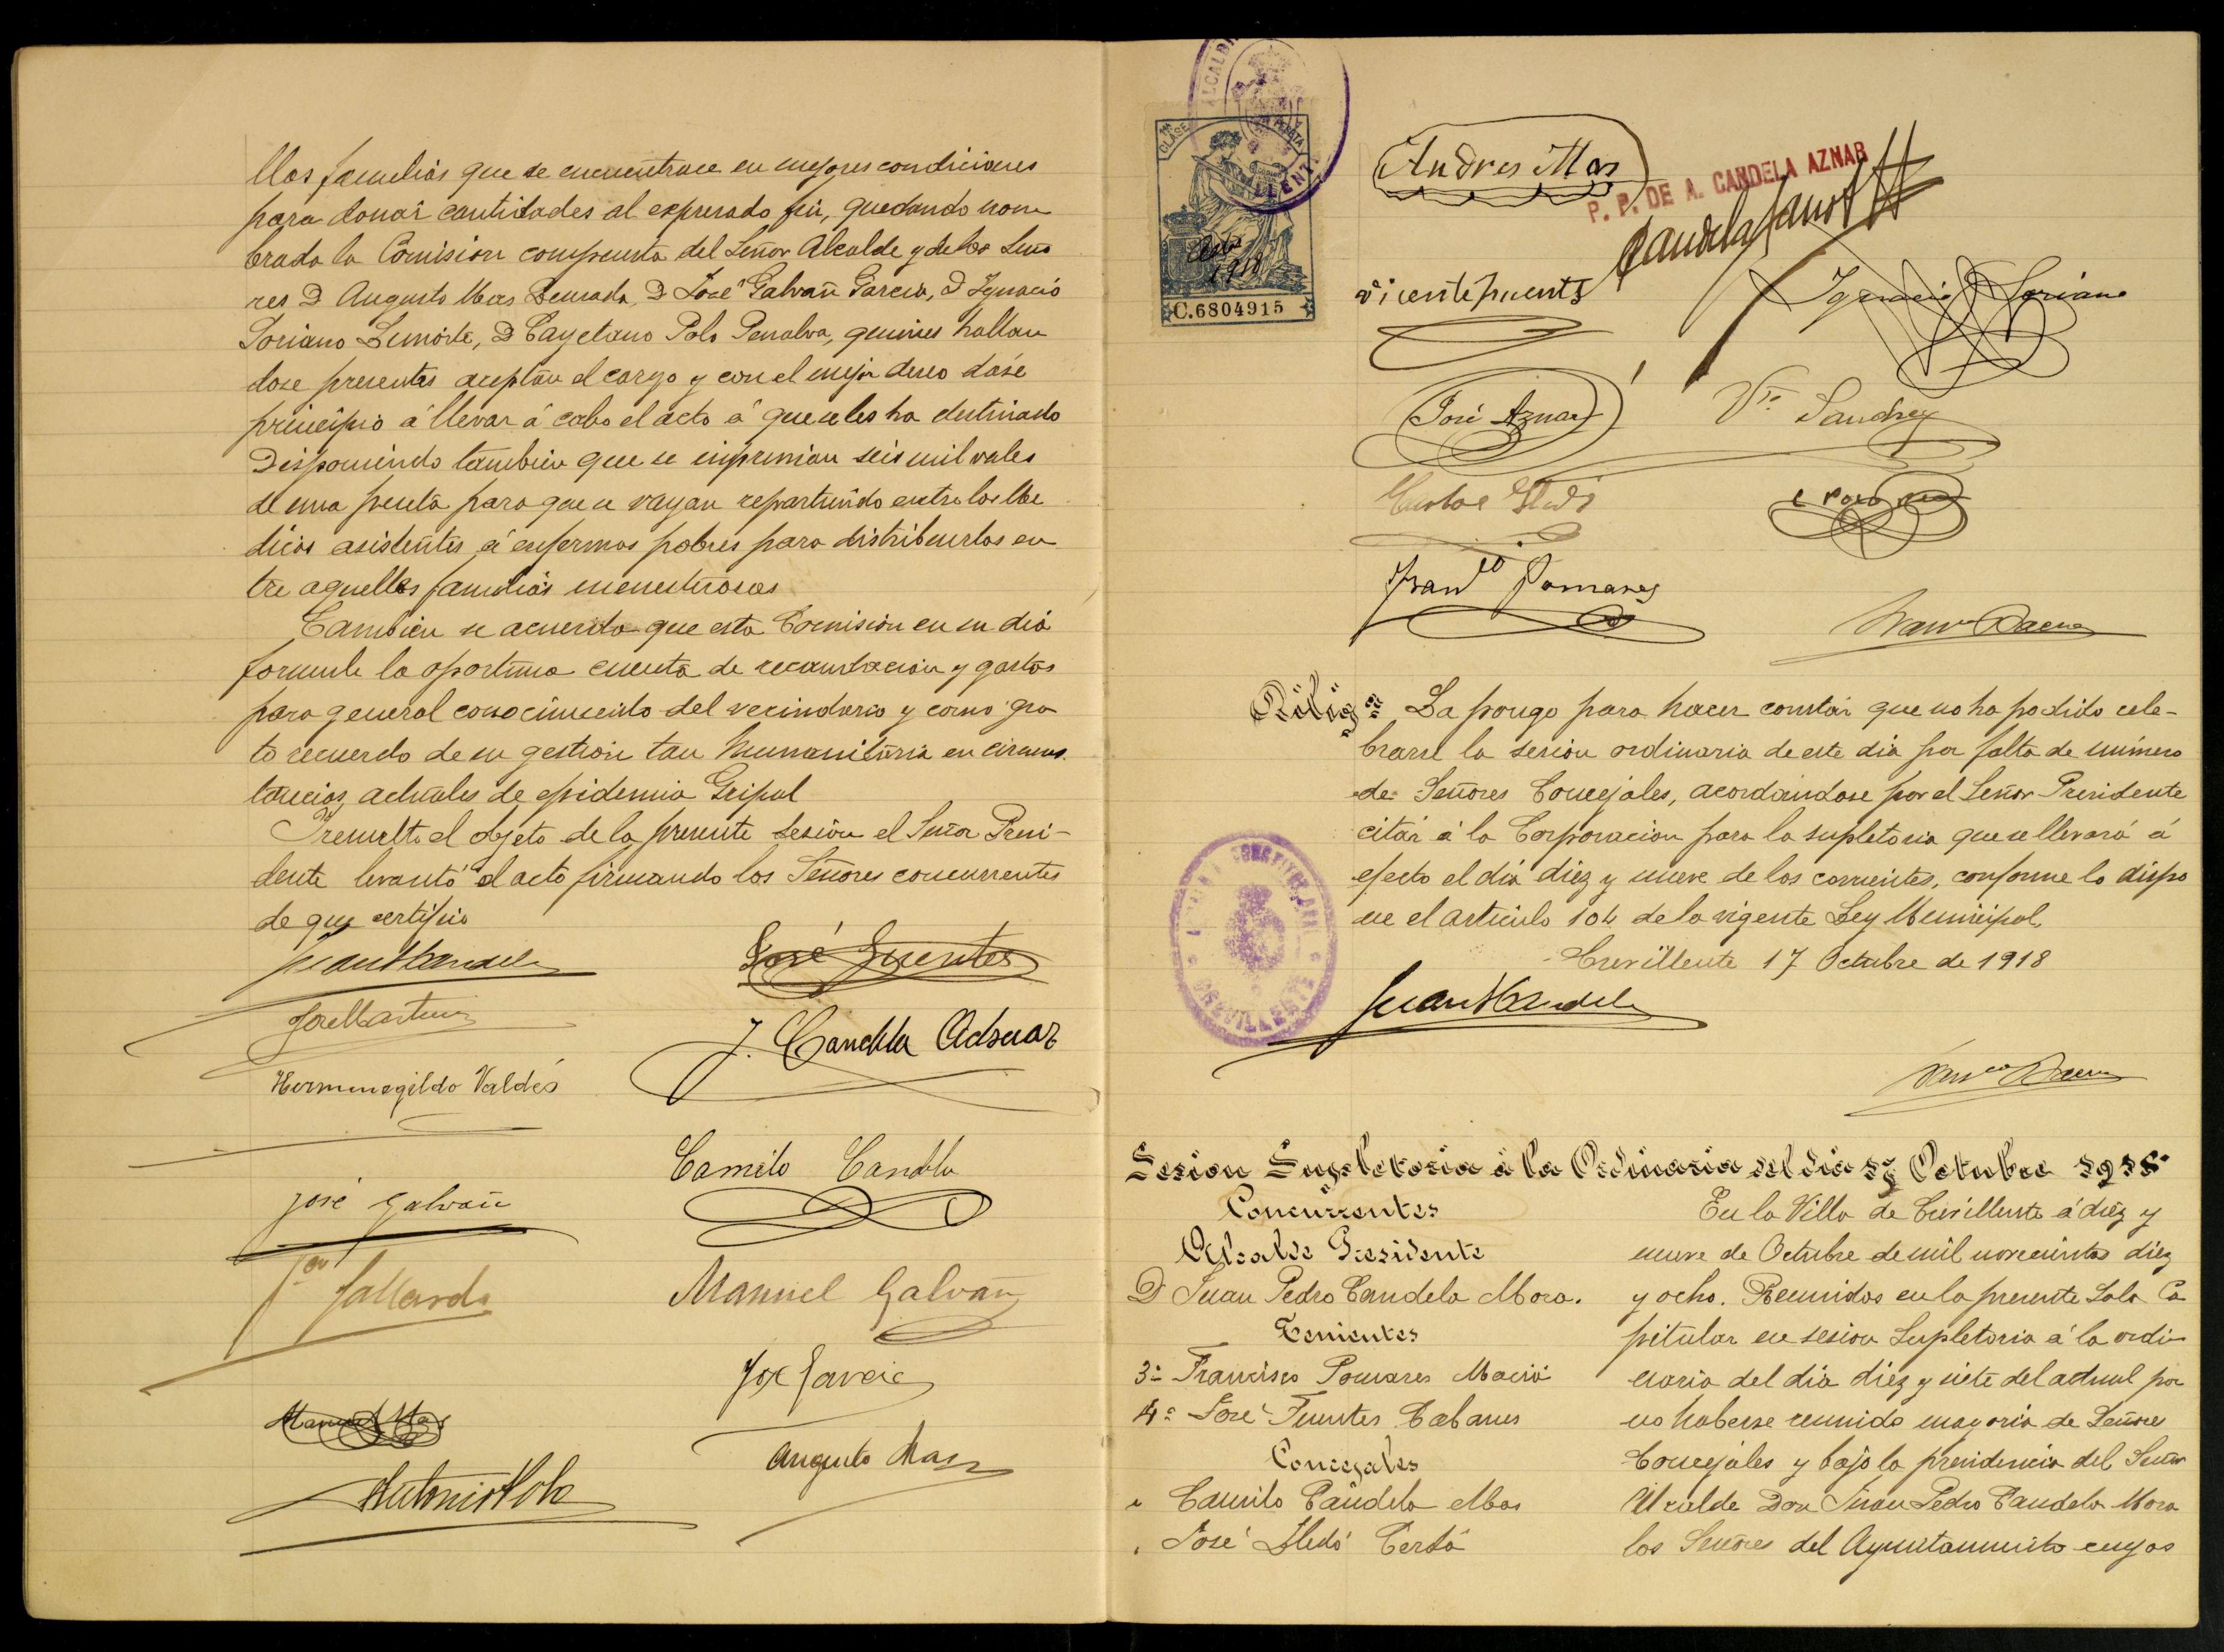 llas familias que se encuentran en mejores condiciones
para donar cantidades al expresado fin, quedando nom
brada la Comision compuesta del Señor Alcalde y de los Seño
res D Augusto Mas Quesada, D José Galvañ Garcia, D Ignacio
Soriano Lemonte, D Cayetano Polo Penalva, quienes hallan
dose presentes aceptan el cargo y con el mejor deseo dase
principio á llevar á cabo el acto á que se les ha destinado
Disponiendo tambien que se impriman seis mil vales
de una peseta para que se vayan repartiendo entre los Me
dicos asistentes á enfermos pobres para distribuirlos en
tre aquellas familias menesterosas
Tambien se acuerda que esta Comision en su dia
formule la oportuna cuenta de recaudacion y gastos
para general conocimiento del vecindario y como gra
to recuerdo de su gestion tan humanitaria en circuns
tancias actuales de epidemia Gripal
Y resuelto el objeto de la presente sesion el Señor Presi-
dente levantó el acto firmando los Señores concurrentes
de que certifico
Juan P Candela
José Fuentes
José Martinez
J. Candela Adsuar
Hermenegildo Valdés
Camilo Candela
José Galvañ
Gallardo
Manuel Galvañ
José Garcia
Manuel Mas
Augusto Mas
Antonio Polo
ALCALDIA
CLASE
PESETA
1918
C.6804915
Andres Mas
P. P. DE A. CANDELA AZNAR
Candela
Vicente puents
Ignacio Soriano
José Aznar
Vte Sanchez
C Polo
Franco Pomares
Franco Baena
Dilig.a La pongo para hacer constar que no ha podido cele-
brarse la sesion ordinaria de este dia por falta de número
de Señores Concejales, acordandose por el Señor Presidente
citar á la Corporacion para la supletoria que se llevará á
efecto el dia diez y nueve de los corrientes, conforme lo dispo
ne el articulo 104 de la vigente Ley Municipal,
Crevillente 17 Octubre de 1918
ALCALDIA CONSTITUCIONAL CREVILLENTE
Juan P Candela
Franco Baena
Sesion Supletoria á la Ordinaria del dia 17 Octubre 1918.
Concurrentes
Alcalde Presidente
D Juan Pedro Candela Mora.
Tenientes
3º Francisco Pomares Maciá
4º José Fuentes Cabanes
Concejales
" Camilo Candela Mas
" José Lledó Cerdá
En la Villa de Crevillente á diez y
nueve de Octubre de mil novecientos diez
y ocho. Reunidos en la presente Sala Ca
pitular en sesion Supletoria á la ordi-
naria del dia diez y siete del actual por
no haberse reunido mayoria de Señores
Concejales y bajo la presidencia del Señor
Alcalde Don Juan Pedro Candela Mora
los Señores del Ayuntamiento cuyos